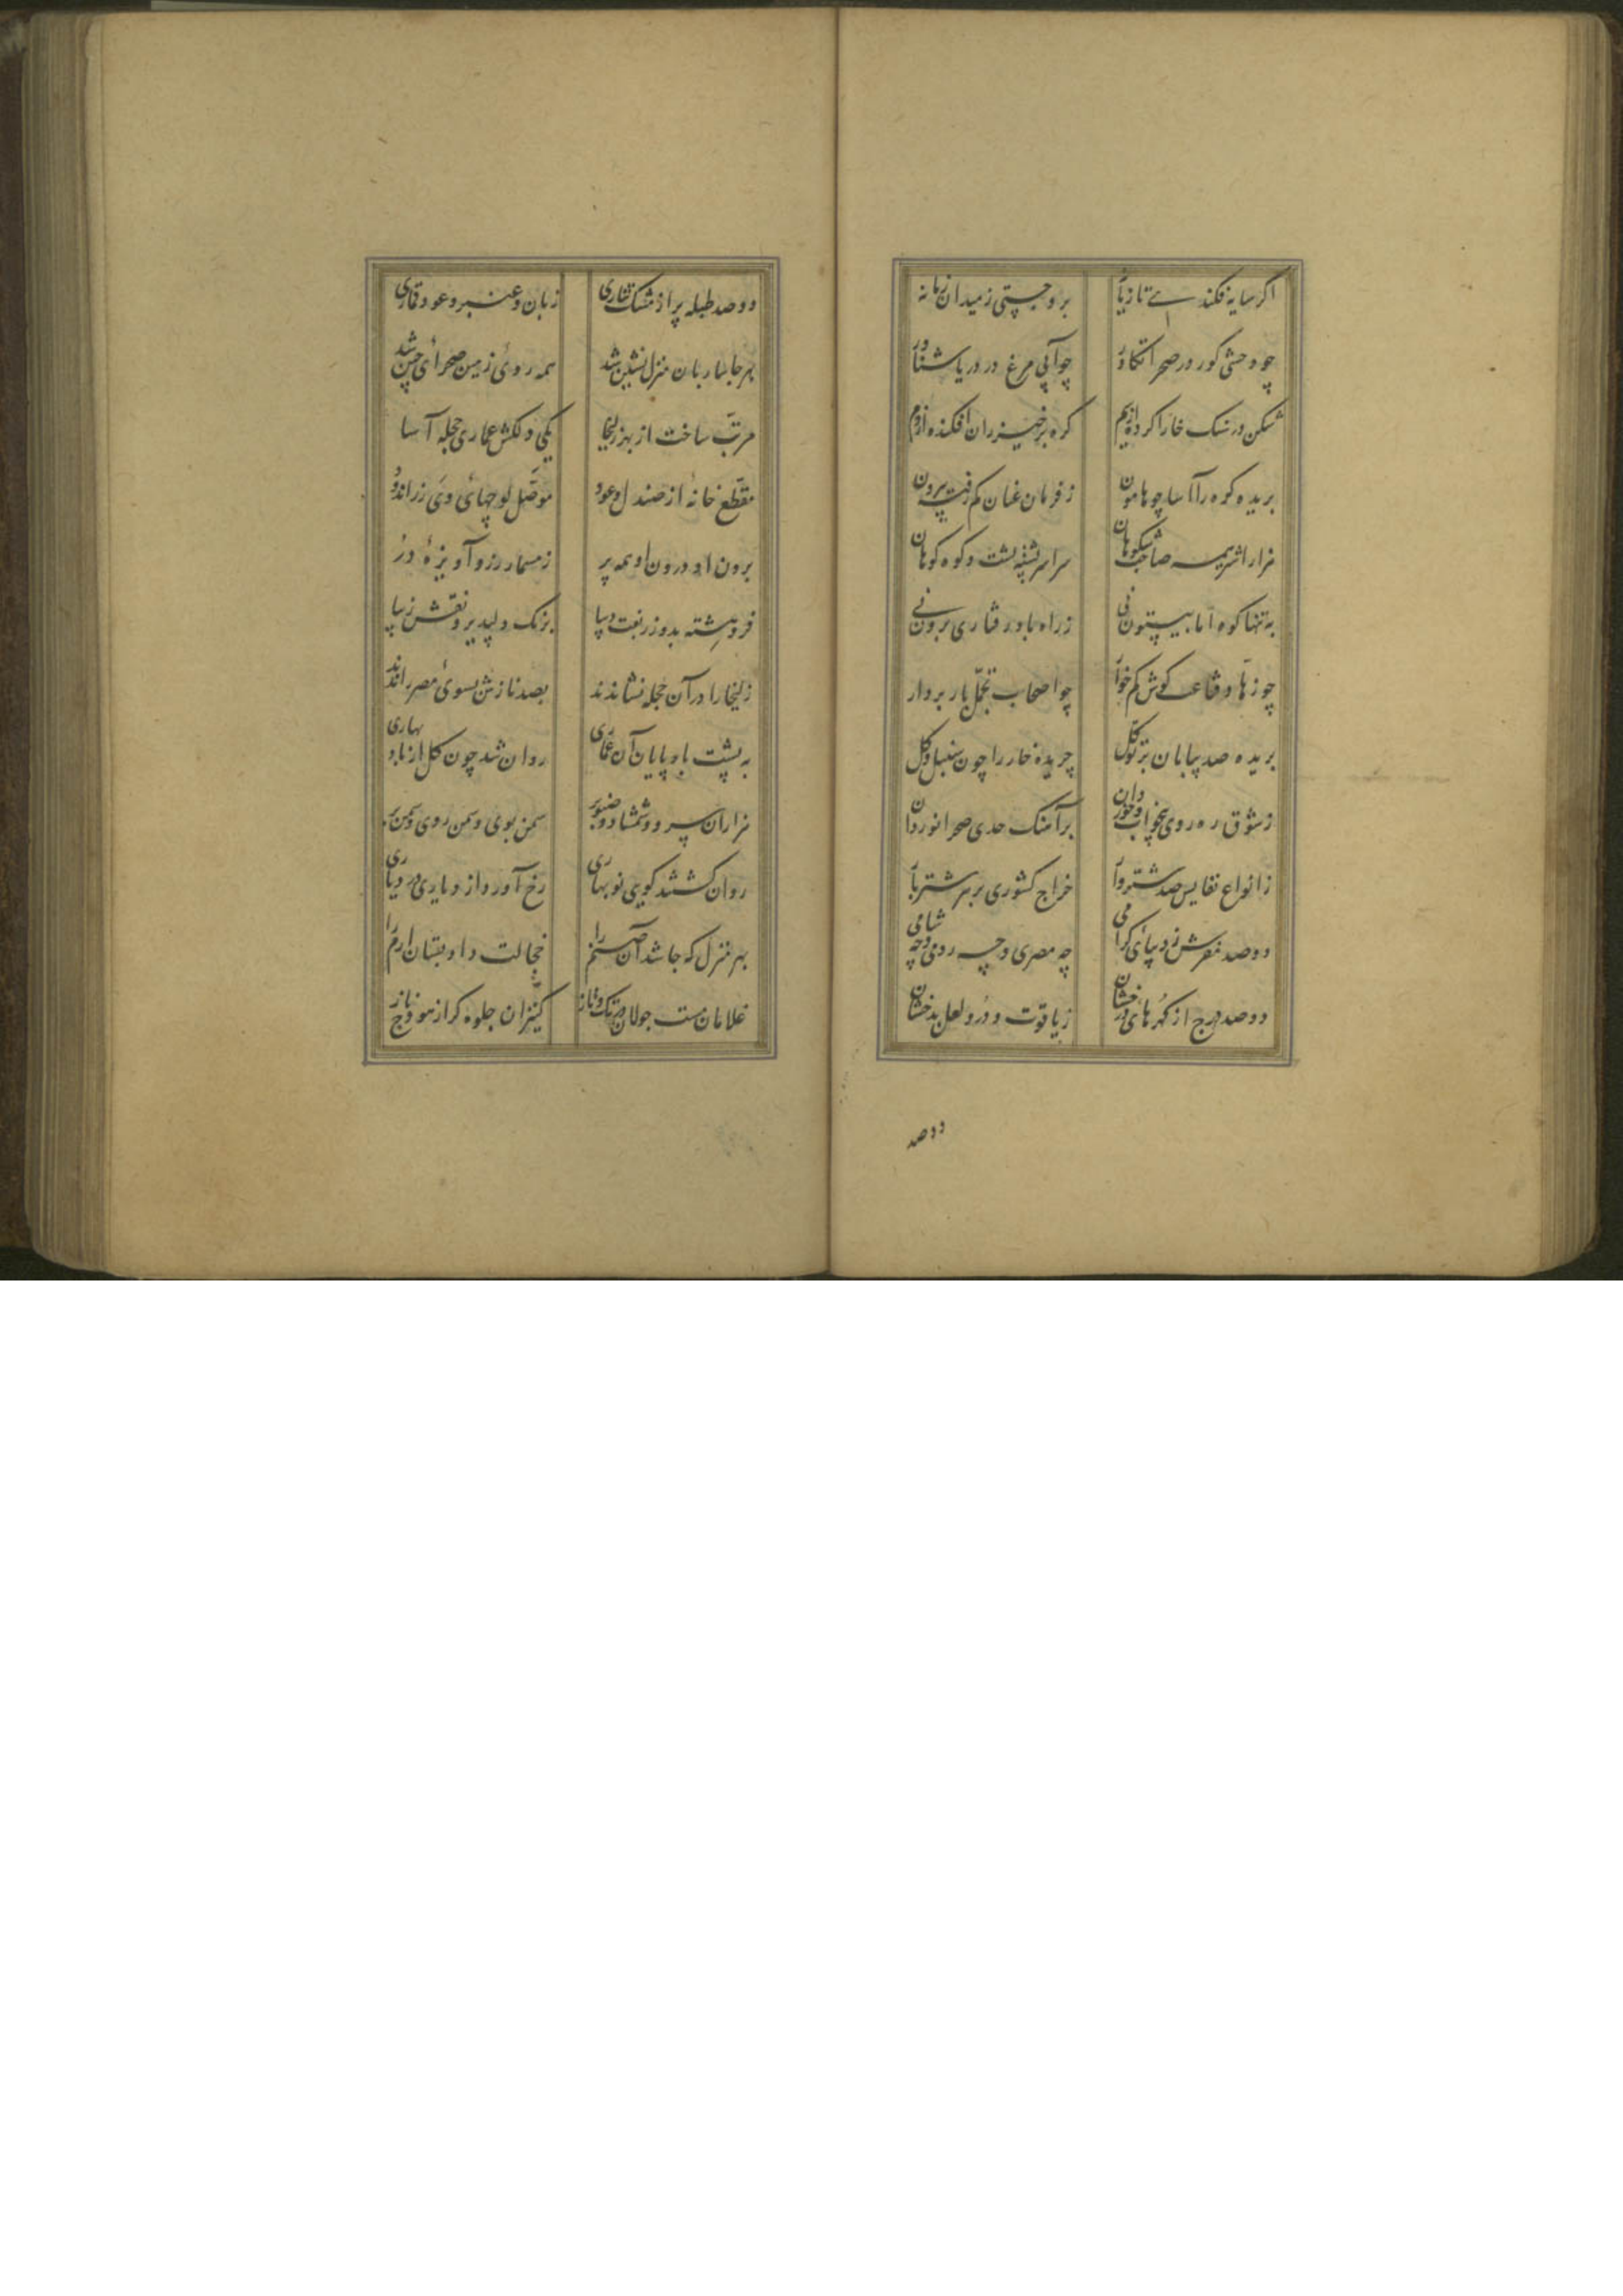 اگر سایه فکندے تازیانه برو جستی ز میدان زمانه
چو وحشی گور در صحرا تکاور چو آبی مرغ در دریا شناور
شکن در سنگ خارا کرده از سم گره بر خیزران افکنده از دم
بریده کوه را آسا چو هامون ز فرمان عنان کم رفته بیرون
هزار اشتر همه صاحب شکوهان سراسر پشته پشت و کوه کوهان
به تنها کوه اما بیستون نی ز راه باد رفتاری برون نی
چو زهاد قناعت کوش کم خوار چو اصحاب تجمل بار بردار
بریده صد بیابان بر توکل چریده خار را چون سنبل و گل
ز شوق ره روی بیخواب و خوردان بر آهنگ حدی صحرا نوردان
ز انواع نفایس صد شتروار خراج کشوری بر هر شتر بار
دو صد مفرش ز دیبای گرامی چه مصری و چه رومی و چه شامی
دو صد درج از گهرهای درخشان ز یاقوت و در و لعل بدخشان
دو صد
دو صد طبله پر از مشک تتاری ز بان و عنبر و عود قماری
بهر جا ساربان منزل نشین شد همه روی زمین صحرای چین شد
مرتب ساخت از بهر زلیخا یکی دلکش عماری حجله آسا
مقطع خانهٔ از صندل و عود موصل لوحهای وی زر اندود
برون او درون او همه پر ز مسمار زر و آویزهٔ در
فروهشته بدو زربفت دیبا برنگ دلپذیر و نقش زیبا
زلیخا را در آن حجله نشاندند بصد نازش بسوی مصر راندند
به پشت بادپایان آن عماری روان شد چون گل از باد بهاری
هزاران سرو و شمشاد و صنوبر سمن بوی و سمن روی و سمن بر
روان گشتند گویی نوبهاری رخ آورد از دیاری در دیاری
بهر منزل که جا شد آن صنم را خجالت داد بستان ارم را
غلامان مست جولان در تک و تاز کنیزان جلوه گر از هودج ناز